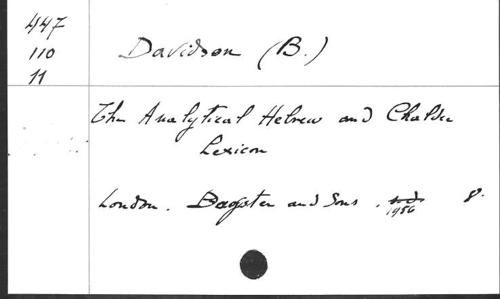 447
110
11
Davidson (B.)
The Analytical Hebrew and Chaldee
Lexicon
London. Bagster and Sons. 1956 8.